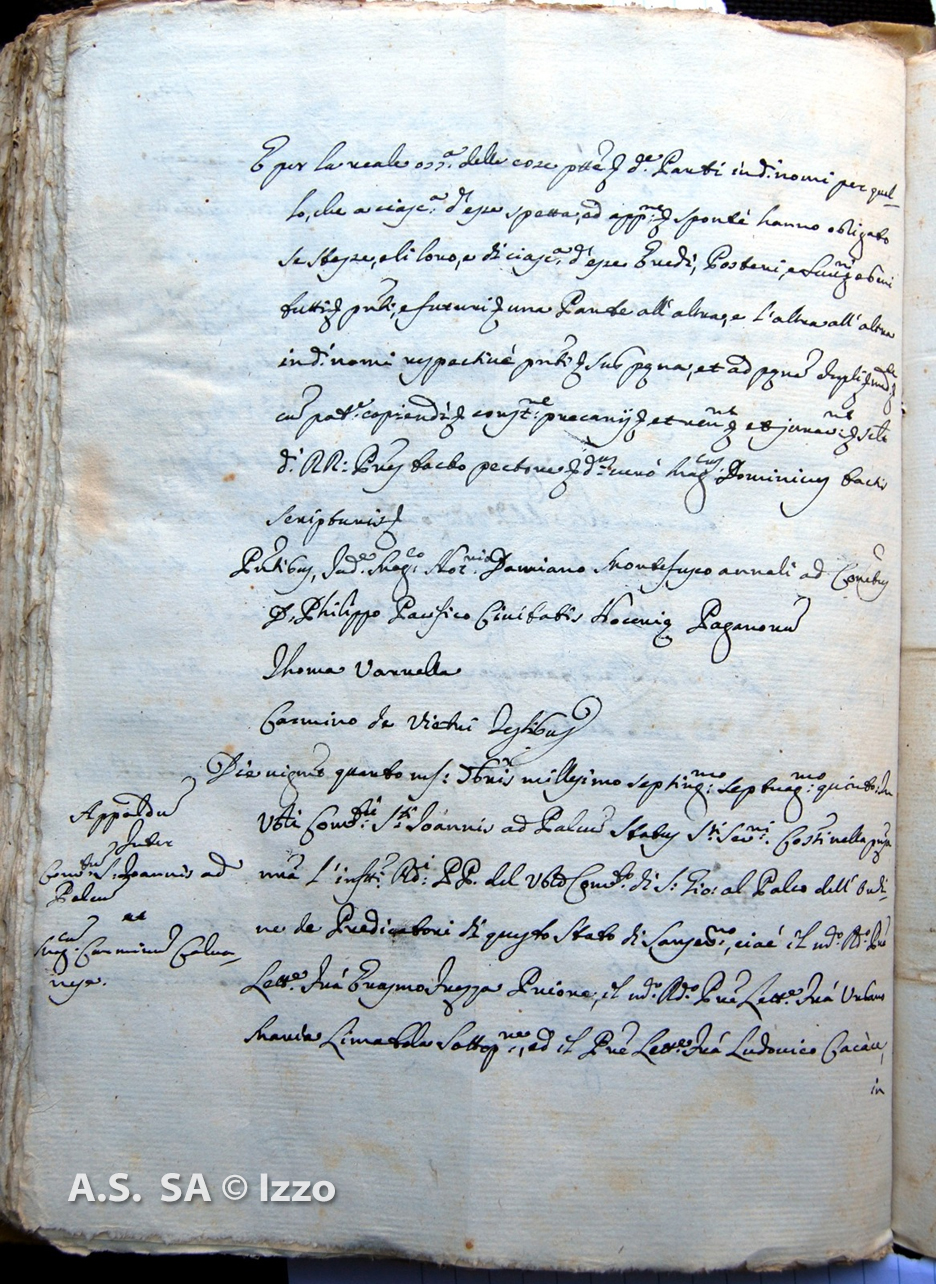 E per la reale oss.a delle cose p̃tte & d.e Parti in d.i nomi per quel=
lo, che a ciasc.a d'esse spetta, ad app.ne & sponte hanno obligato
se stesse, e li loro, e di ciasc.a d'esse Eredi, Posteri, e beni
tutti & p̃nti, e futuri & una Parte all'altra, e l'altra all'altra
in d.i nomi respective p̃nti & sub pęna, et ad pęna dupli &
cum pot.e capiendi & const.ne precarij & et ren.nt & et jurav.nt &
d.i RR: P̃res tacto pectore & d.us vero Mag.cus Dominicus tactis
scripturis &
P̃ntibus, Jud.e Mag.co Not.rio Damiano Montefusco
D. Philippo Pacifico Civitatis Nocerię Paganorum
Thoma Vannella
Carmino de Vietri Testibus
Die vigesimo quarto m.s: 8bris millesimo septing.mo septuag.mo quinto: In
V̄bli Conv.tu S.ti Joannis ad Palcum Status S.ti Sev.ni Costituti nella p̃nza
n̄ra l'infr̄i R.di: P.P. del V̄ble Conv.to di S: Gio: al Palco dell'ordi=
ne de Predicatori di questo Stato di Sanseve.no, cioè il m.do R.do: P̃re
Lett.e Frà Erasmo Frezza Priore, il m.do R.do P̃re Lett.e Frà Urbano
Maria Limatola Sottop.re, ed il P̃re Lett.e Frà Ludovico
in
Appaldum
Inter
Conv.tum S: Joannis ad
Palcum
et
Mag.cum Carminum Calva=
nese.
A.S. SA © Izzo